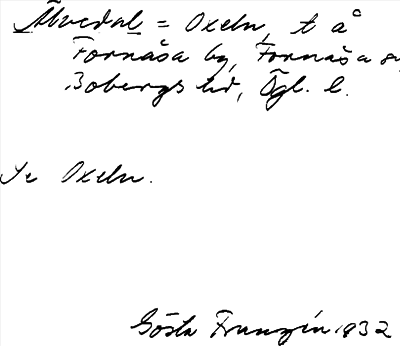 Älvedal = Oxeln, t å
Fornåsa by, Fornåsa s
Bobergs hd, Ögl. l.
Se Oxeln.
Gösta Franzén 1932